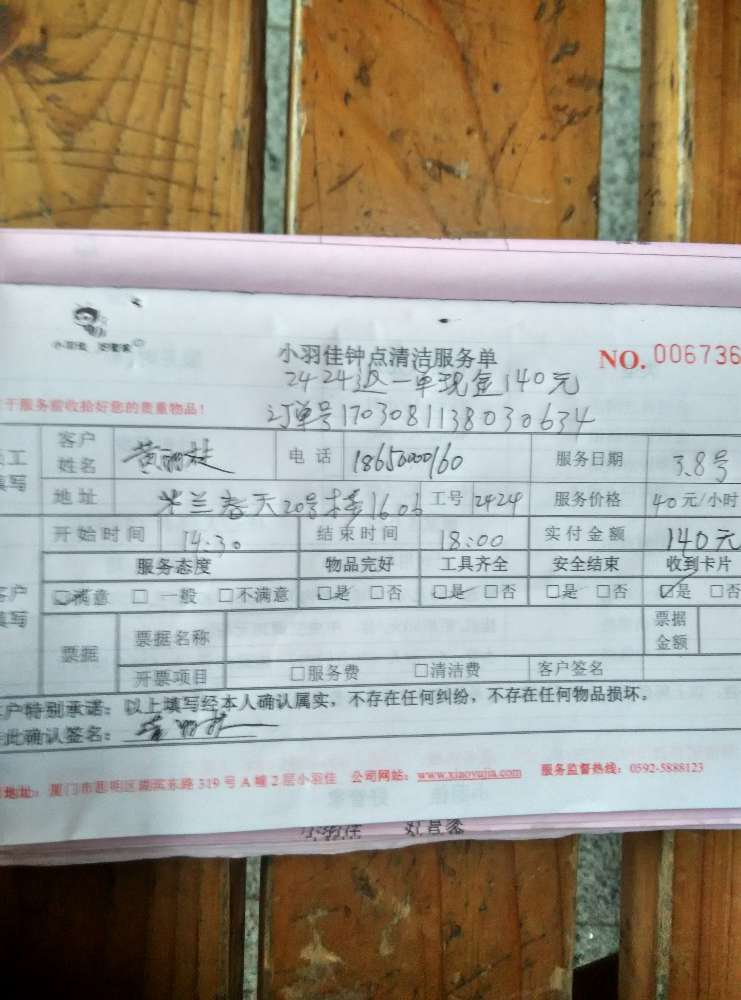 小羽佳 好管家
小羽佳钟点清洁服务单
NO. 006736
2424返一单现金140元
于服务前收拾好您的贵重物品！
订单号1703081138030634
客户姓名 黄丽 电话 18650000160 服务日期 3.8号
地址 米兰春天20号楼1606 工号 2424 服务价格 40元/小时
开始时间 14:30 结束时间 18:00 实付金额 140元
服务态度 物品完好 工具齐全 安全结束 收到卡片
填写
□满意 □一般 □不满意 □是 □否 □是 □否 □是 □否 □是 □否
票据 票据名称 票据金额
开票项目 □服务费 □清洁费 客户签名
户特别承诺：以上填写经本人确认属实，不存在任何纠纷，不存在任何物品损坏。
此确认签名：
地址：厦门市思明区湖滨东路319号A幢2层小羽佳 公司网站：www.xiaoyujia.com 服务监督热线：0592-5888123
小羽佳 好管家